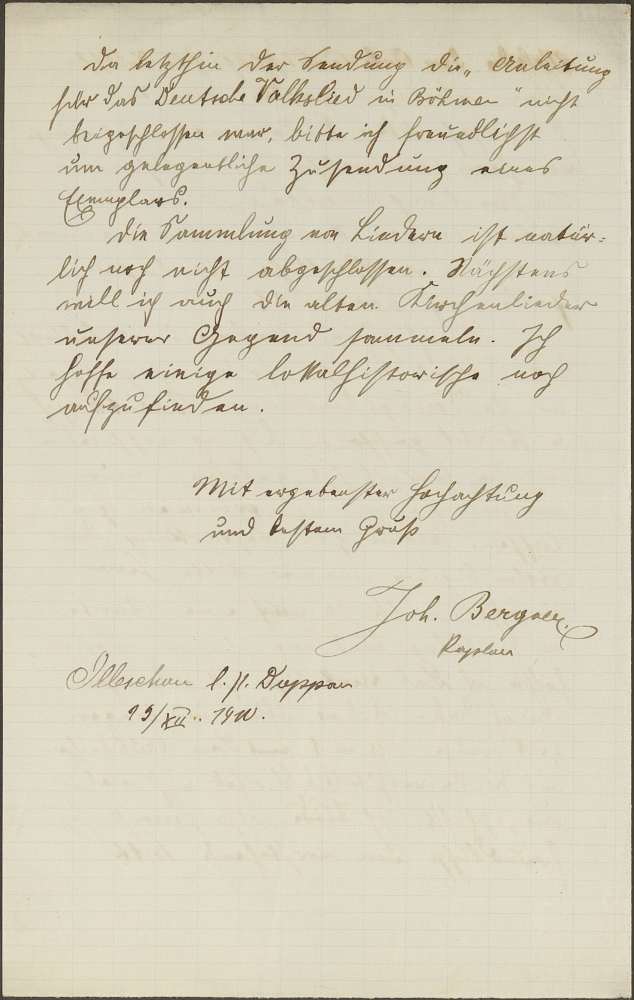 Da letzthin der Sendung die „Anleitung
für das Deutsche Volkslied in Böhmen" nicht
beigeschlossen war, bitte ich freundlichst
um gelegentliche Zusendung eines
Exemplars.
Die Sammlung von Liedern ist natür-
lich noch nicht abgeschlossen. Nächstens
will ich auch die alten Kirchenlieder
unserer Gegend sammeln. Ich
hoffe einige lokalhistorische noch
aufzufinden.
Mit ergebenster Hochachtung
und bestem Gruß
Joh. Bergner
Kaplan
Illeschau l. P. Duppau
/XII. 1910.